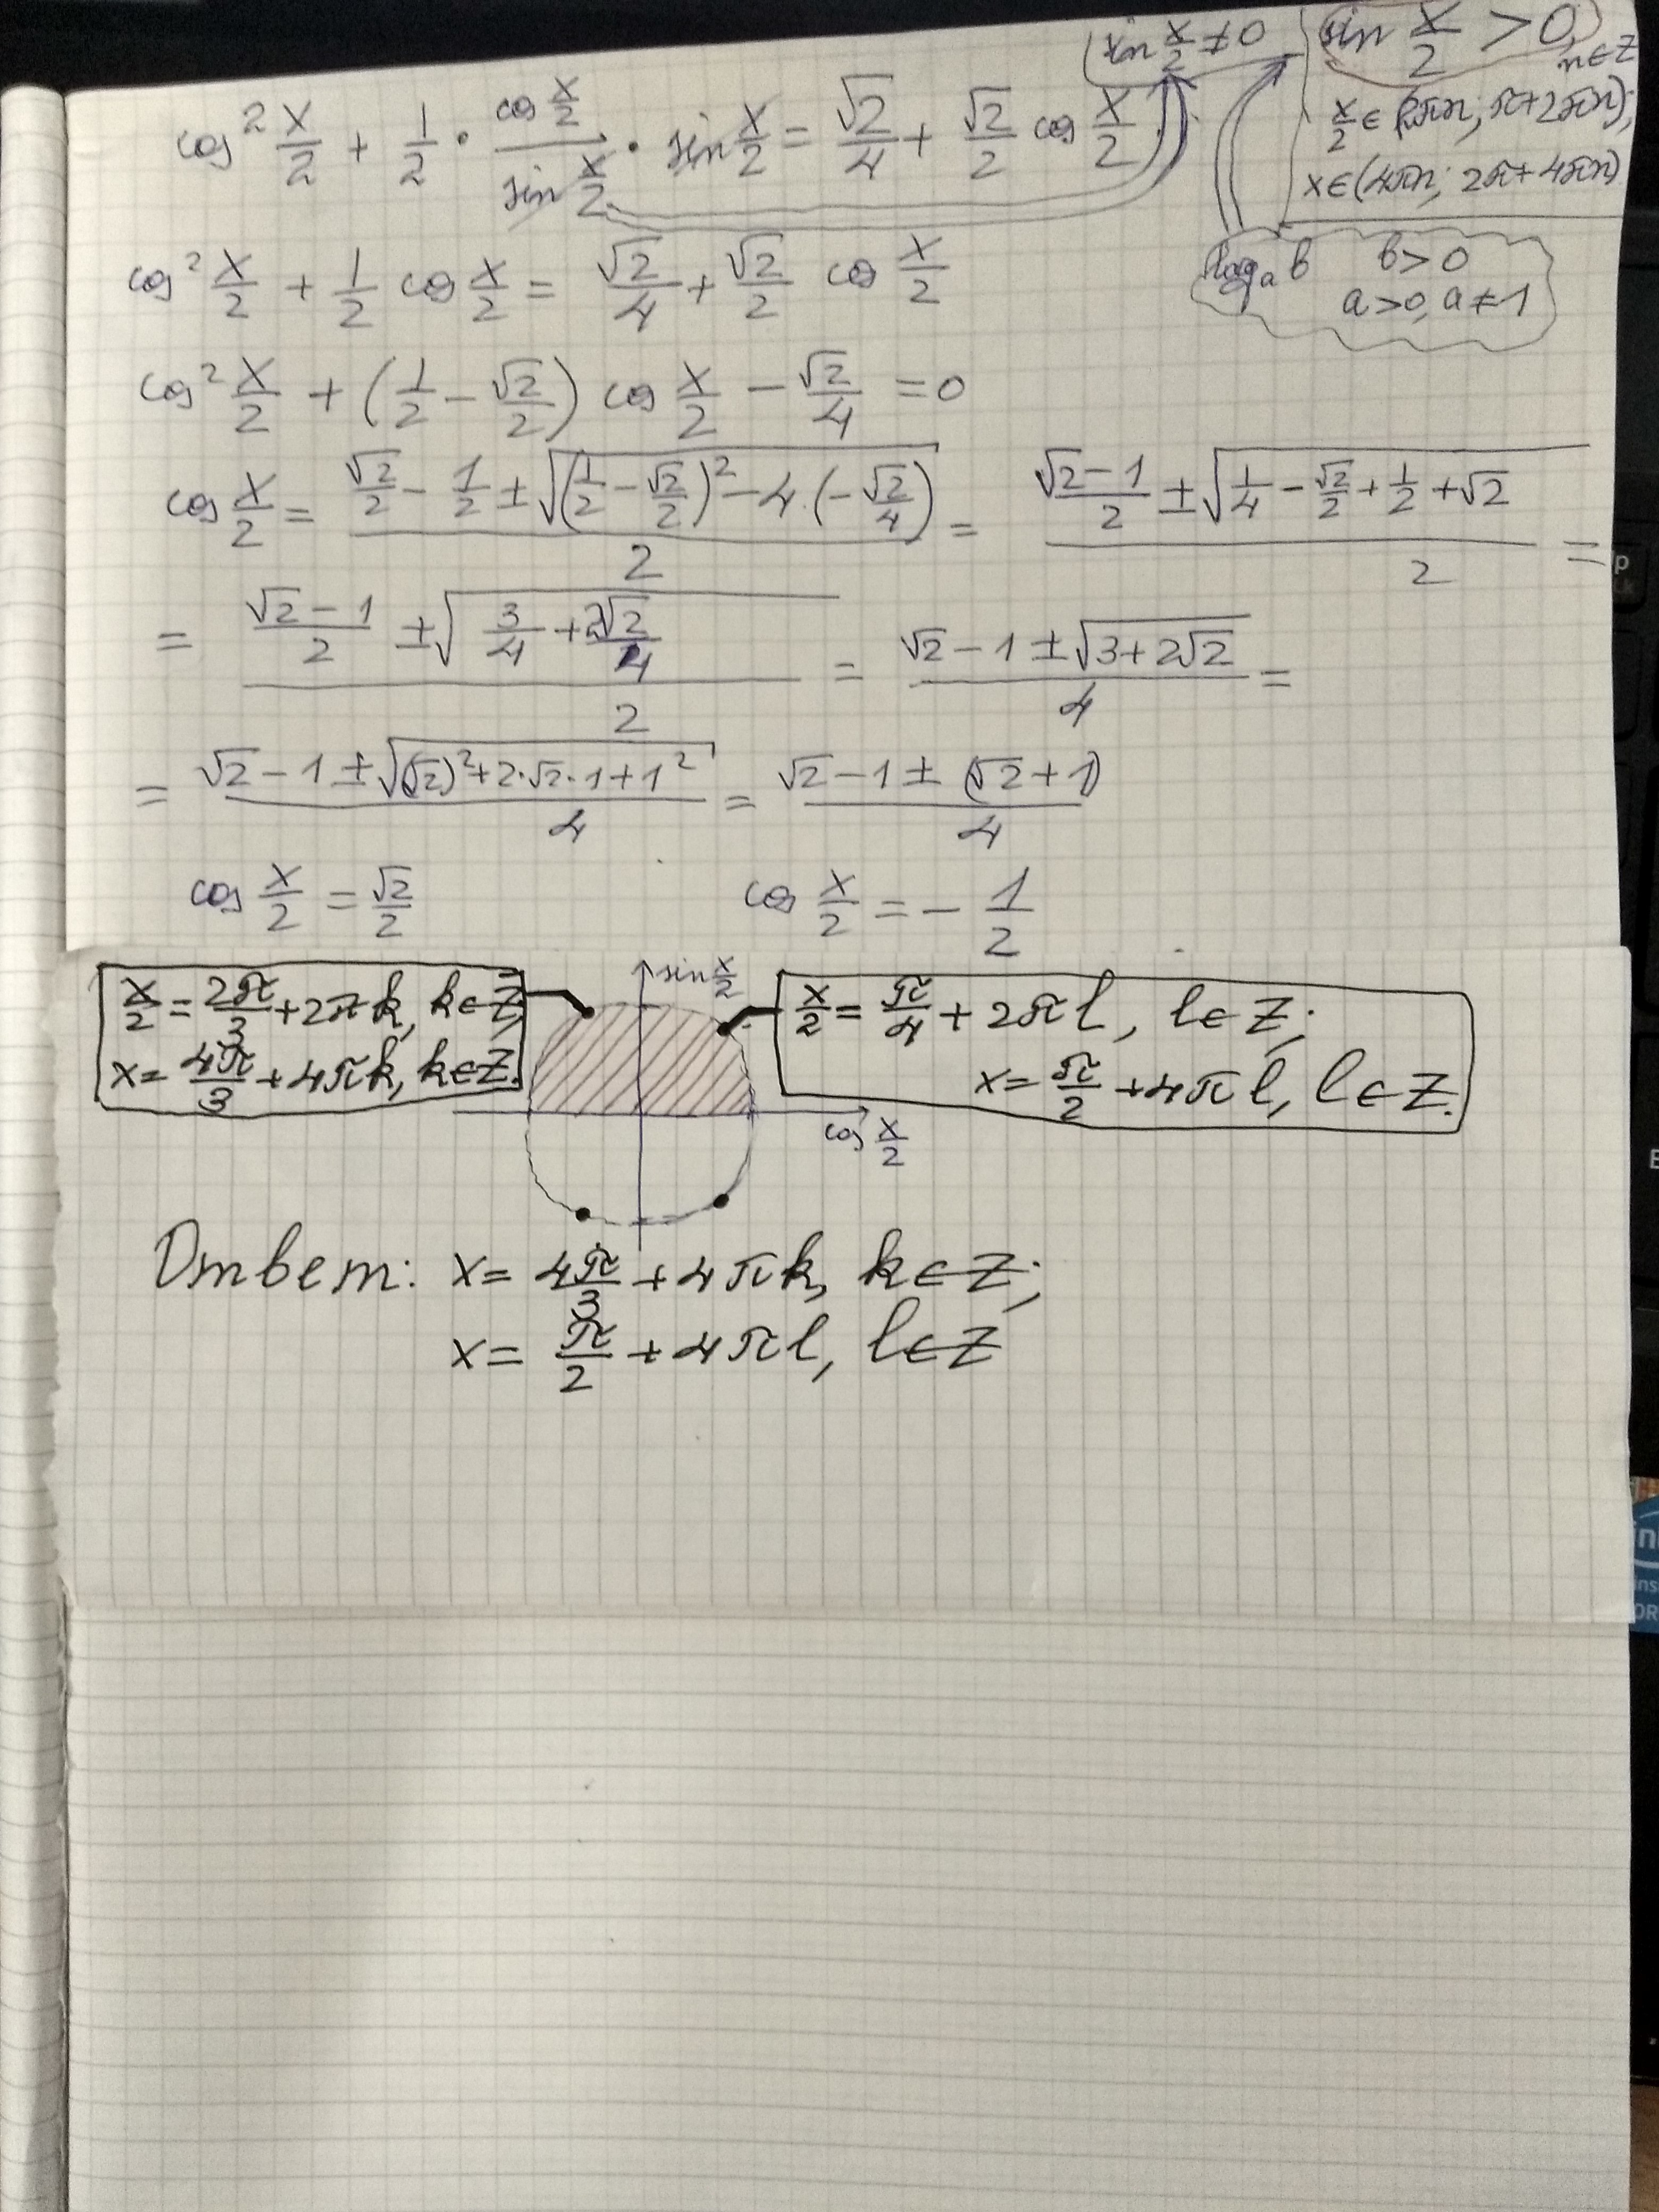 sin x/2 ≠ 0
sin x/2 > 0, n∈Z
x/2 ∈ (2πn; π+2πn);
x∈(4πn; 2π+4πn)
cos² x/2 + 1/2 · (cos x/2)/(sin x/2) · sin x/2 = √2/4 + √2/2 cos x/2
logₐ b b>0
a>0, a≠1
cos² x/2 + 1/2 cos x/2 = √2/4 + √2/2 cos x/2
cos² x/2 + (1/2 − √2/2) cos x/2 − √2/4 = 0
cos x/2 = (√2/2 − 1/2 ± √((1/2 − √2/2)² − 4·(−√2/4)))/2 = ((√2−1)/2 ± √(1/4 − √2/2 + 1/2 + √2))/2 =
= ((√2−1)/2 ± √(3/4 + 2√2/4))/2 = (√2−1±√(3+2√2))/4 =
= (√2−1±√((√2)²+2·√2·1+1²))/4 = (√2−1±(√2+1))/4
cos x/2 = √2/2 cos x/2 = − 1/2
x/2 = 2π/3 + 2πk, k∈Z;
x = 4π/3 + 4πk, k∈Z.
sin x/2
cos x/2
x/2 = π/4 + 2πl, l∈Z;
x = π/2 + 4πl, l∈Z.
Ответ: x = 4π/3 + 4πk, k∈Z;
x = π/2 + 4πl, l∈Z